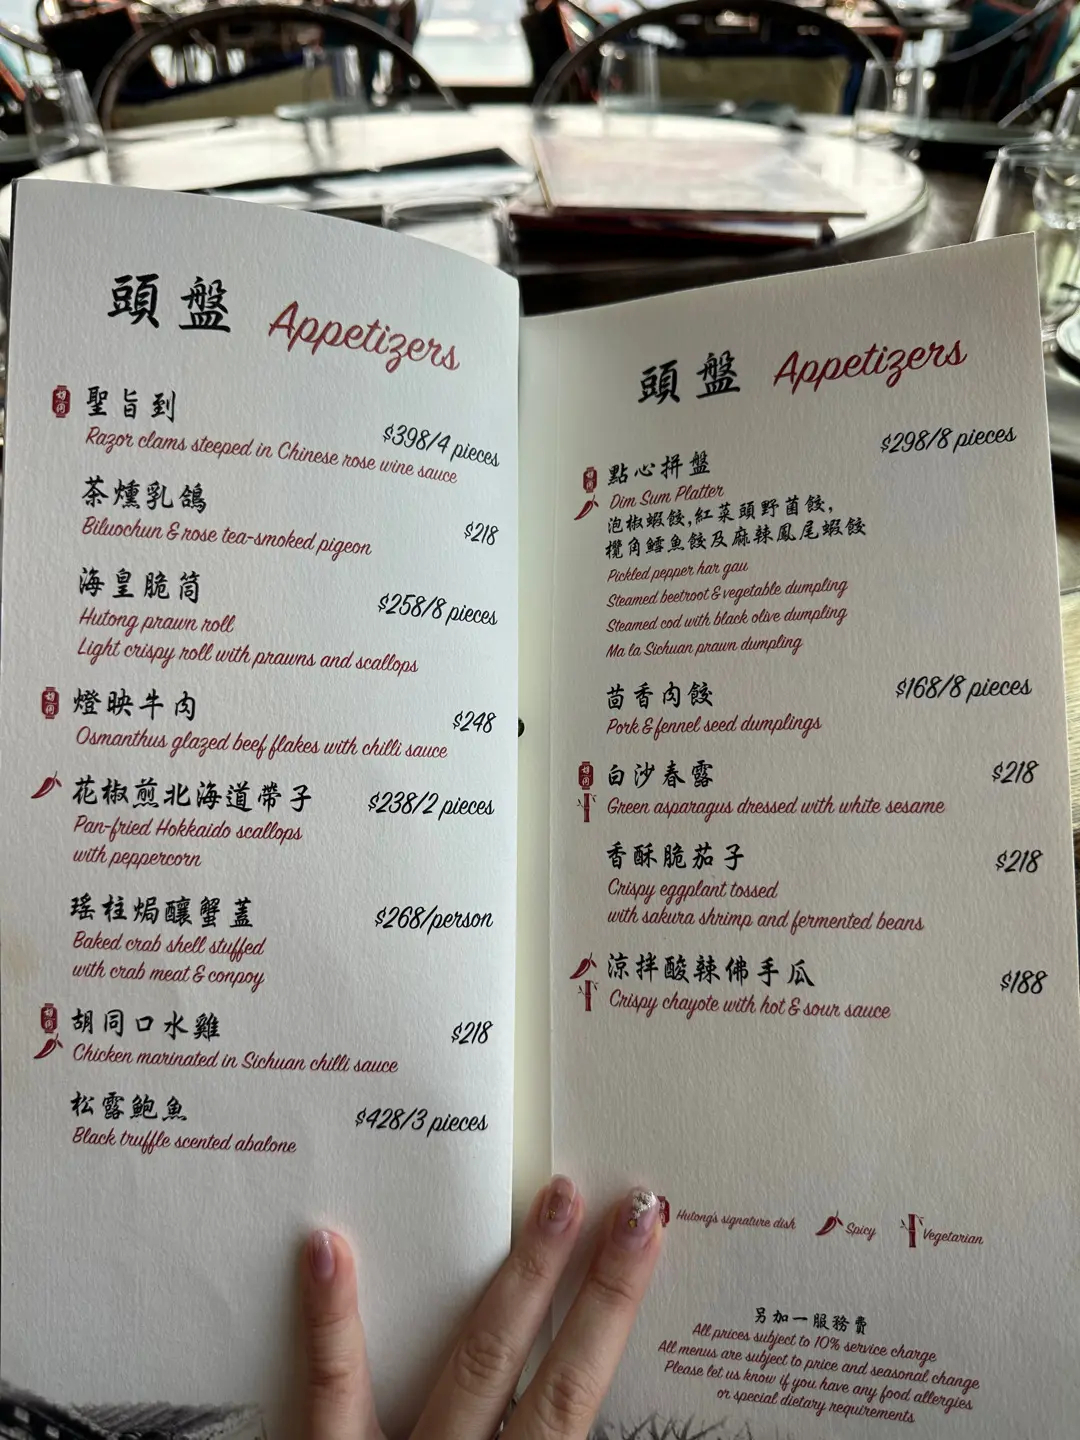 頭盤 Appetizers
聖旨到
$398/4 pieces
Razor clams steeped in Chinese rose wine sauce
茶燻乳鴿
$218
Biluochun & rose tea-smoked pigeon
海皇脆筒
$258/8 pieces
Hutong prawn roll
Light crispy roll with prawns and scallops
燈映牛肉
$248
Osmanthus glazed beef flakes with chilli sauce
花椒煎北海道帶子 $238/2 pieces
Pan-fried Hokkaido scallops
with peppercorn
瑤柱焗釀蟹蓋 $268/person
Baked crab shell stuffed
with crab meat & conpoy
胡同口水雞 $218
Chicken marinated in Sichuan chilli sauce
松露鮑魚 $428/3 pieces
Black truffle scented abalone
頭盤 Appetizers
$298/8 pieces
點心拼盤
Dim Sum Platter
泡椒蝦餃,紅菜頭野菌餃,
欖角鱈魚餃及麻辣鳳尾蝦餃
Pickled pepper har gau
Steamed beetroot & vegetable dumpling
Steamed cod with black olive dumpling
Ma la Sichuan prawn dumpling
茴香肉餃 $168/8 pieces
Pork & fennel seed dumplings
白沙春露 $218
Green asparagus dressed with white sesame
香酥脆茄子 $218
Crispy eggplant tossed
with sakura shrimp and fermented beans
涼拌酸辣佛手瓜 $188
Crispy chayote with hot & sour sauce
Hutong's signature dish Spicy Vegetarian
另加一服務費
All prices subject to 10% service charge
All menus are subject to price and seasonal change
Please let us know if you have any food allergies
or special dietary requirements